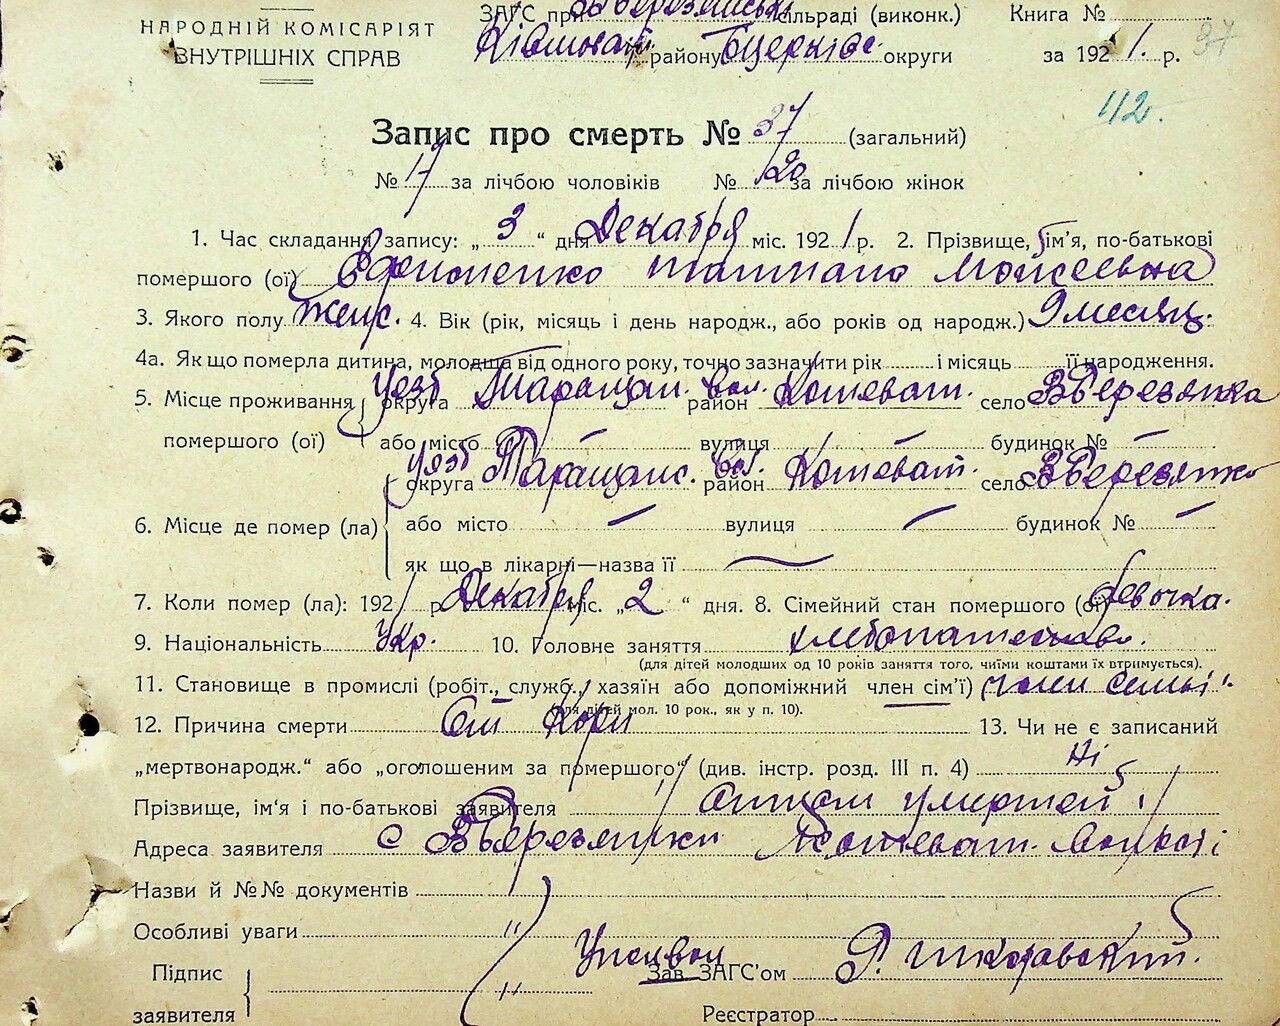 НАРОДНІЙ КОМІСАРІЯТ
ВНУТРІШНІХ СПРАВ
ЗАГС при сільраді (виконк.)
району Бцерківс. округи
Книга №
за 1921. р. 37
42.
Запис про смерть № 37 (загальний)
№ 17 за лічбою чоловіків № 20 за лічбою жінок
1. Час складання запису: „ 3 “ дня Декабря міс. 1921 р. 2. Прізвище, ім’я, по-батькові
помершого (ої) Моисеевна
3. Якого полу Женс. 4. Вік (рік, місяць і день народж., або років од народж.) 9 месяц.
4а. Як що померла дитина, молодша від одного року, точно зазначити рік і місяць її народження.
5. Місце проживання Уезд округа Таращан. Вол. район Кошеват. село ВБерезянка
помершого (ої) або місто – вулиця – будинок № –
Уезд округа Таращанс. Вол. район Кошеват. село ВБерезянка
6. Місце де помер (ла) або місто – вулиця – будинок № –
як що в лікарні—назва її
7. Коли помер (ла): 1921 р. Декабря міс. „2“ дня. 8. Сімейний стан помершого (ої) девочка.
9. Національність Укр. 10. Головне заняття
(для дітей молодших од 10 років заняття того, чиїми коштами їх втримується).
11. Становище в промислі (робіт., служб., хазяїн або допоміжний член сім’ї) член семьи
(для дітей мол. 10 рок., як у п. 10).
12. Причина смерти От Кори 13. Чи не є записаний
„мертвонародж.“ або „оголошеним за помершого“ (див. інстр. розд. III п. 4) Ні
Прізвище, ім’я і по-батькові заявителя умершей
Адреса заявителя с ВБерезянки Кошеват. Волости
Назви й №№ документів
Особливі уваги "
Підпис
заявителя "
Зав. ЗАГС’ом
Реєстратор